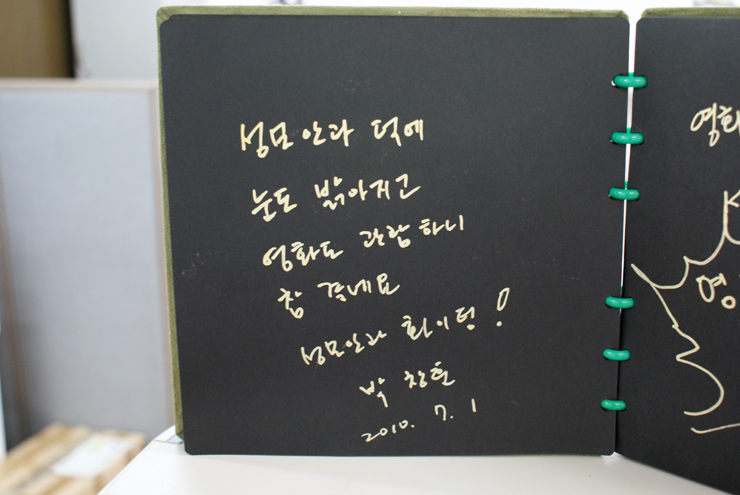 성모안과 덕에
눈도 밝아지고
영화도 관람하니
참 좋네요
성모안과 화이팅!
박창호
2010. 7. 1
영화
영